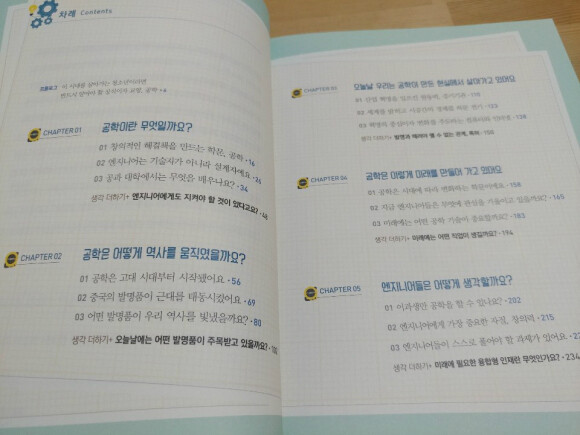 차례 Contents
프롤로그 이 시대를 살아가는 청소년이라면
반드시 알아야 할 공학이라 교양, 공학 • 4
CHAPTER 01 공학이란 무엇일까요?
01 창의적인 해결책을 만드는 학문, 공학 • 16
02 엔지니어는 기술자가 아니라 설계자예요 • 24
03 공과 대학에서는 무엇을 배우나요? • 34
생각 더하기+ 엔지니어에게도 지켜야 할 것이 있다고요? • 46
CHAPTER 02 공학은 어떻게 역사를 움직였을까요?
01 공학은 고대 시대부터 시작됐어요 • 56
02 중국의 발명품이 근대를 태동시켰어요 • 69
03 어떤 발명품이 우리 역사를 빛냈을까요? • 80
생각 더하기+ 오늘날에는 어떤 발명품이 주목받고 있을까요?
CHAPTER 03 오늘날 우리는 공학이 만든 현실에서 살아가고 있어요
01 산업 혁명을 일으킨 원동력, 증기기관 • 110
02 세계를 밝히고 시공간의 경계를 허문 전기 • 123
03 혁명의 중심에서 변화를 주도하는 컴퓨터와 인터넷 • 138
생각 더하기+ 발명과 떼려야 뗄 수 없는 관계, 특허 • 150
CHAPTER 04 공학은 어떻게 미래를 만들어 가고 있어요
01 공학은 시대에 따라 변화하는 학문이에요 • 158
02 지금 엔지니어들은 무엇에 관심을 기울이고 있을까요? • 165
03 미래에는 어떤 공학 기술이 중요할까요? • 183
생각 더하기+ 미래에는 어떤 직업이 생길까요? • 194
CHAPTER 05 엔지니어들은 어떻게 생각할까요?
01 이과생만 공학을 할 수 있나요? • 202
02 엔지니어에게 가장 중요한 자질, 창의력 • 215
03 엔지니어들이 스스로 풀어야 할 과제가 있어요
생각 더하기+ 미래에 필요한 융합형 인재란 무엇인가요? • 234